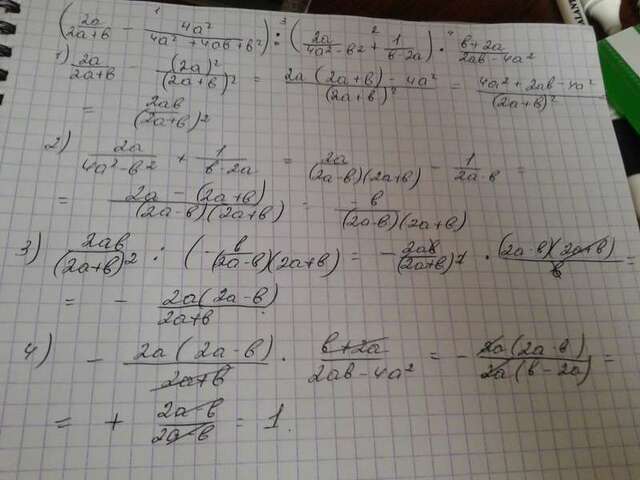 (2a/(2a+b) - 4a²/(4a²+4ab+b²)) : (2a/(4a²-b²) + 1/(b-2a)) · (b+2a)/(2ab-4a²)
1) 2a/(2a+b) - (2a)²/(2a+b)² = (2a(2a+b)-4a²)/(2a+b)² = (4a²+2ab-4a²)/(2a+b)²
= 2ab/(2a+b)²
2) 2a/(4a²-b²) + 1/(b-2a) = 2a/((2a-b)(2a+b)) - 1/(2a-b) =
= (2a-(2a+b))/((2a-b)(2a+b)) = -b/((2a-b)(2a+b))
3) 2ab/(2a+b)² : (- b/((2a-b)(2a+b)) = - 2ab/(2a+b)² · ((2a-b)(2a+b))/b =
= - 2a(2a-b)/(2a+b)
4) - 2a(2a-b)/(2a+b) · (b+2a)/(2ab-4a²) = - 2a(2a-b)/(2a(b-2a)) =
= + (2a-b)/(2a-b) = 1.